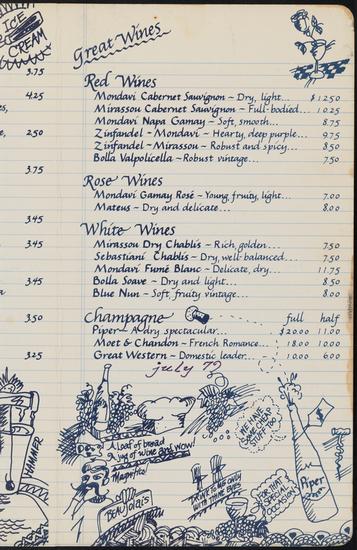 ICE
CREAM
3.75
4.25
2.50
3.75
3.45
3.45
3.45
3.50
3.25
HAMMER
Great Wines
Red Wines
Mondavi Cabernet Sauvignon ~ Dry, light... $12.50
Mirassou Cabernet Sauvignon ~ Full-bodied... 10.25
Mondavi Napa Gamay ~ Soft, smooth... 8.75
Zinfandel - Mondavi ~ Hearty, deep purple... 9.75
Zinfandel - Mirassou ~ Robust and spicy... 8.50
Bolla Valpolicella ~ Robust vintage... 7.50
Rose Wines
Mondavi Gamay Rosé ~ Young, fruity, light... 7.00
Mateus ~ Dry and delicate... 8.00
White Wines
Mirassou Dry Chablis ~ Rich, golden... 7.50
Sebastiani Chablis ~ Dry, well-balanced... 7.50
Mondavi Fumé Blanc ~ Delicate, dry... 11.75
Bolla Soave ~ Dry and light... 8.50
Blue Nun ~ Soft, fruity vintage... 8.00
Champagne full half
Piper ~ A dry spectacular... $20.00 11.00
Moet & Chandon ~ French Romance... 18.00 10.00
Great Western ~ Domestic leader... 10.00 6.00
july 79
A loaf of bread
A jug of wine and WOW!
Magnifico!
BEAUJOLAIS
DRINK TO ME ONLY
WITH THINE EYES
WE HAVE
SOME CHEAP
STUFF TOO
FOR THAT
SPECIAL
OCCASION
$
Piper